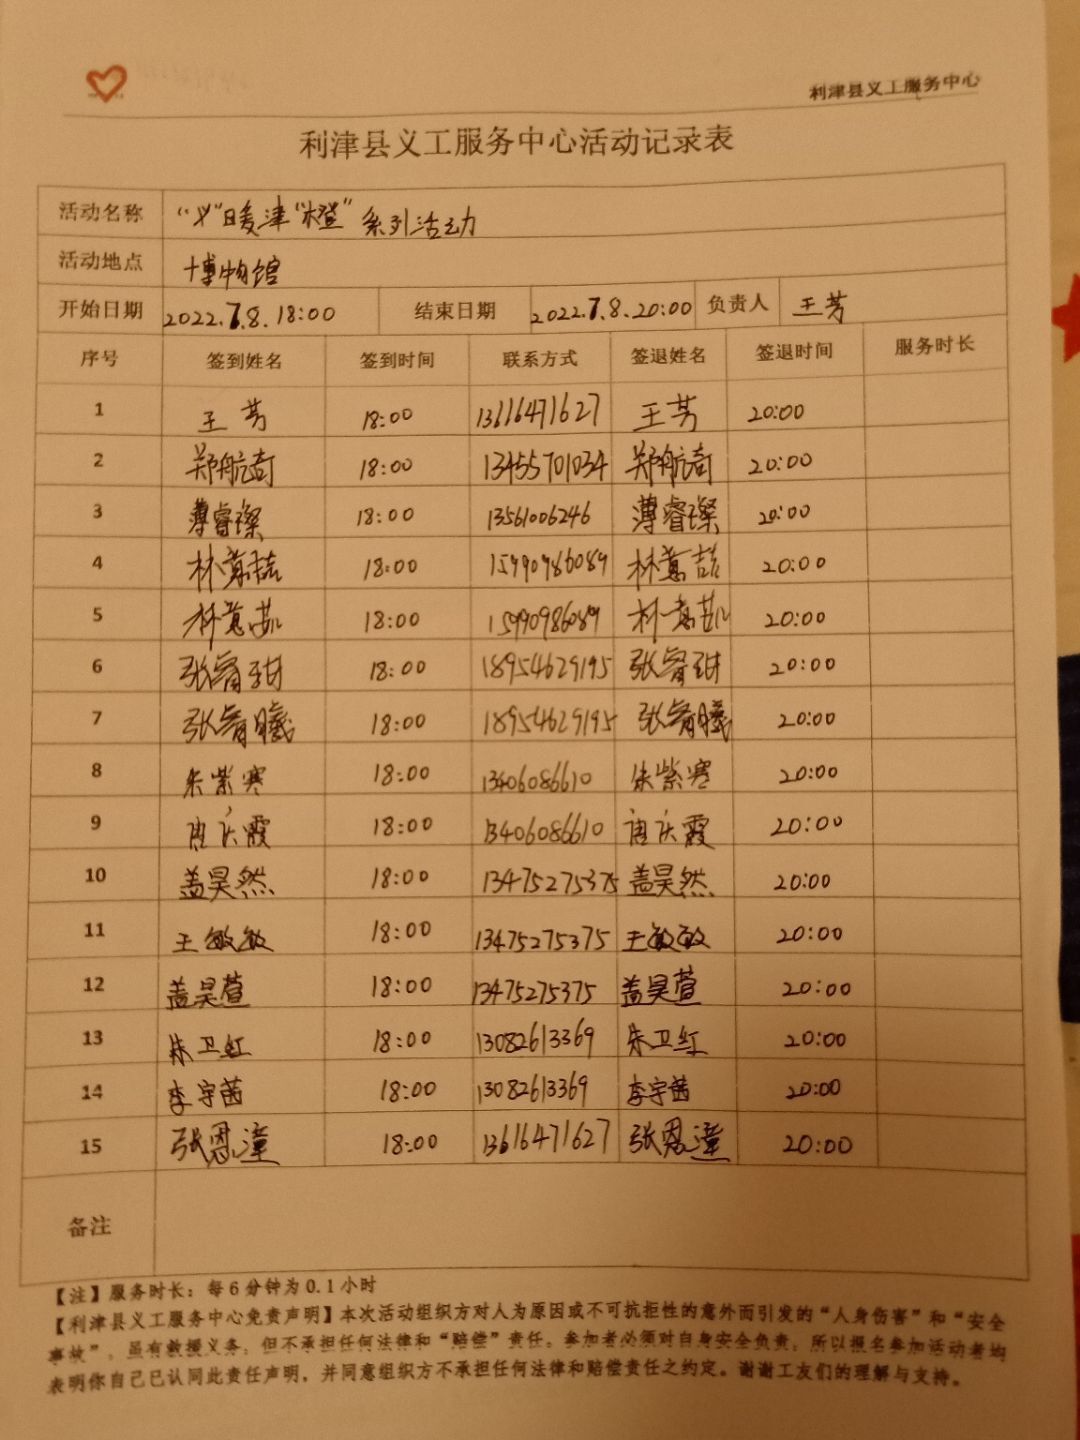 利津县义工服务中心
利津县义工服务中心活动记录表
活动名称 “义”暖津“橙”系列活动
活动地点 博物馆
开始日期 2022.7.8.18:00 结束日期 2022.7.8.20:00 负责人 王芳
序号 签到姓名 签到时间 联系方式 签退姓名 签退时间 服务时长
1 王芳 18:00 13616471627 王芳 20:00
2 郑航奇 18:00 13455701034 郑航奇 20:00
3 薄睿璨 18:00 13561006246 薄睿璨 20:00
4 林意喆 18:00 15990986089 林意喆 20:00
5 林意茹 18:00 15990986089 林意茹 20:00
6 张睿甜 18:00 18954629195 张睿甜 20:00
7 张睿曦 18:00 18954629195 张睿曦 20:00
8 朱紫寒 18:00 13406086610 朱紫寒 20:00
9 唐庆霞 18:00 13406086610 唐庆霞 20:00
10 盖昊然 18:00 13475275375 盖昊然 20:00
11 王敏敏 18:00 13475275375 王敏敏 20:00
12 盖昊萱 18:00 13475275375 盖昊萱 20:00
13 朱卫红 18:00 13082613369 朱卫红 20:00
14 李宇茜 18:00 13082613369 李宇茜 20:00
15 张恩潼 18:00 13616471627 张恩潼 20:00
备注
【注】服务时长：每6分钟为0.1小时
【利津县义工服务中心免责声明】本次活动组织方对人为原因或不可抗拒性的意外而引发的“人身伤害”和“安全
事故”，虽有救援义务，但不承担任何法律和“赔偿”责任。参加者必须对自身安全负责，所以报名参加活动者均
表明你自己已认同此责任声明，并同意组织方不承担任何法律和赔偿责任之约定。谢谢工友们的理解与支持。